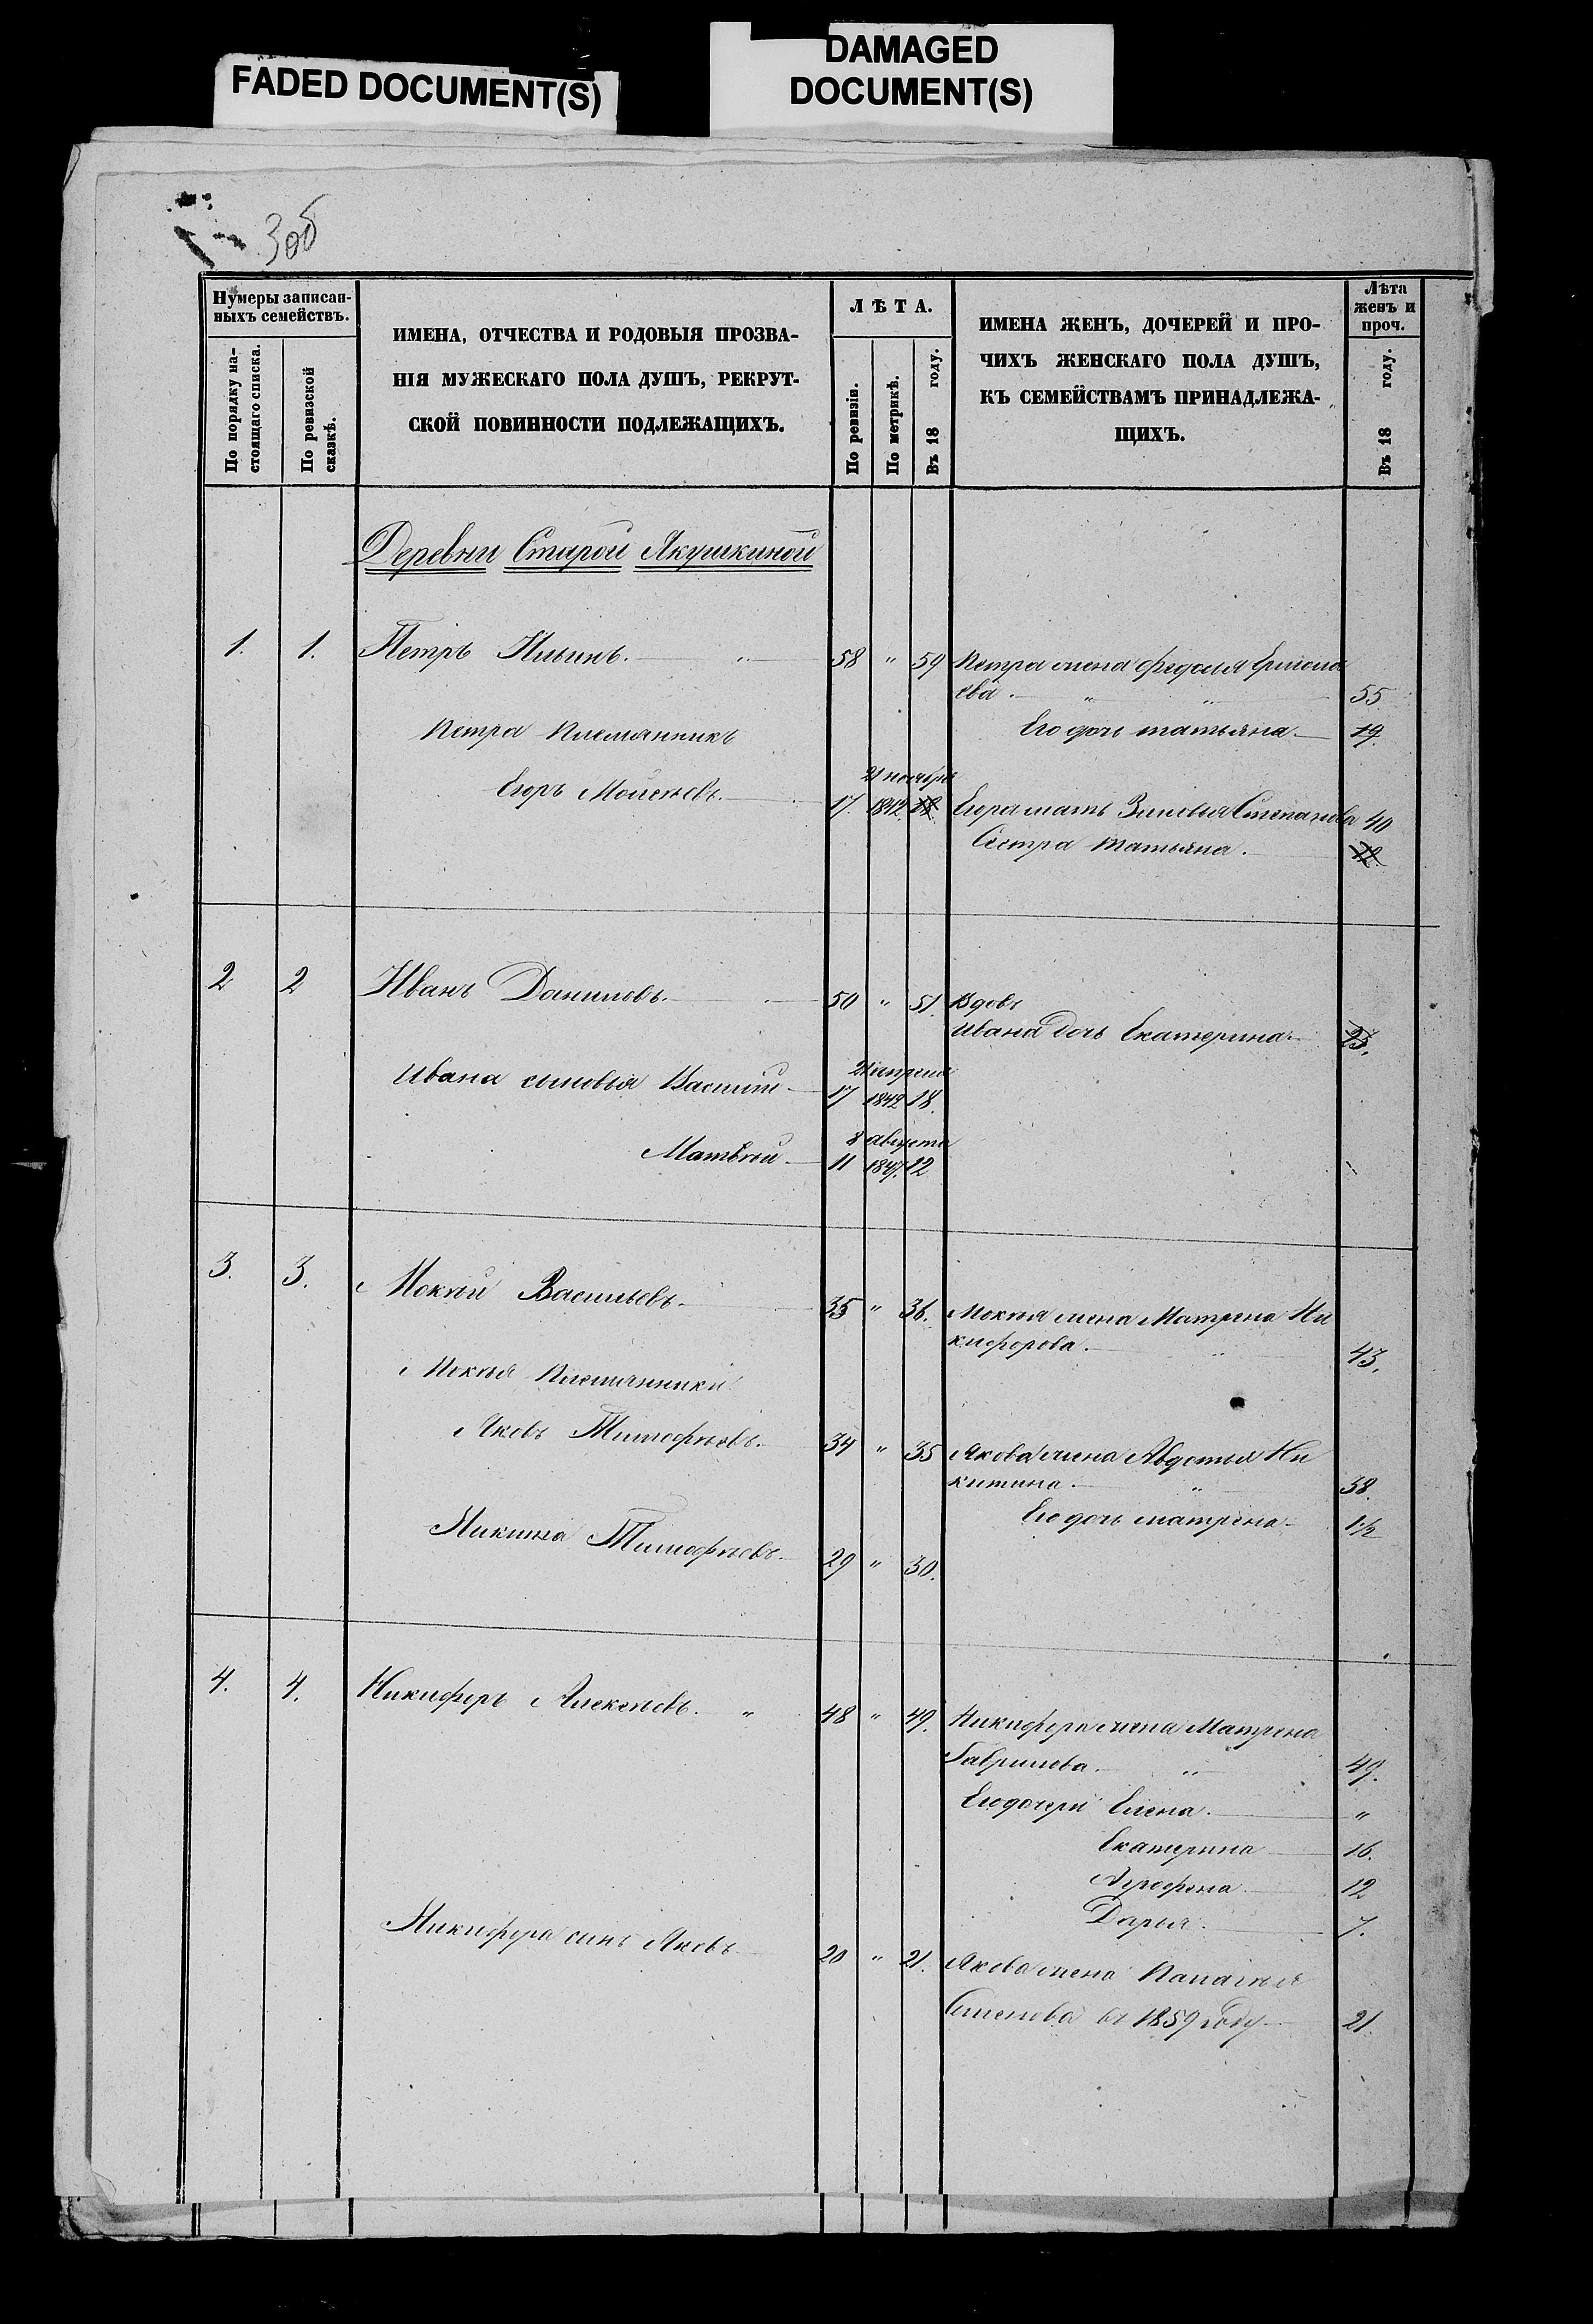 FADED DOCUMENT(S)
DAMAGED
DOCUMENT(S)
3об
Нумеры записан-
ныхъ семействъ.
По порядку на-
стоящаго списка.
По ревизской
сказкѣ.
ИМЕНА, ОТЧЕСТВА И РОДОВЫЯ ПРОЗВА-
НІЯ МУЖЕСКАГО ПОЛА ДУШЪ, РЕКРУТ-
СКОЙ ПОВИННОСТИ ПОДЛЕЖАЩИХЪ.
ЛѢТА.
По ревизіи.
По метрикѣ.
Въ 18 году.
ИМЕНА ЖЕНЪ, ДОЧЕРЕЙ И ПРО-
ЧИХЪ ЖЕНСКАГО ПОЛА ДУШЪ,
КЪ СЕМЕЙСТВАМЪ ПРИНАДЛЕЖА-
ЩИХЪ.
Лѣта
женъ и
проч.
Въ 18 году.
Деревни Старой Якушкиной
1. 1. Петръ Ильинъ. " 58 " 59 Петра жена Федосья Ермола
ева. " " 55
Петра племянникъ Его дочь татьяна 19.
21 ноября
Егоръ Мойсеевъ. 17. 1842 18. Егора мать Зиновья Степанова 40
Сестра татьяна.
2 2 Иванъ Даниловъ. 50 " 51. Вдовъ
Ивана дочь Екатерина 23.
21 апреля
Ивана сыновья Василий 17 1842 18.
8 августа
Матвѣй 11 1847. 12
3. 3. Мокѣй Васильевъ. 35 " 36. Мокѣя жена Матрена Ни
кифорова. " 43.
Мокѣя племянники
Яковъ Тимофѣевъ. 34 " 35 Якова жена Авдотья Ни
китина. " 38.
Его дочь матрена 1 1/2
Никита Тимофѣевъ. 29 " 30.
4. 4. Никифоръ Алексѣевъ. " 48 " 49. Никифора жена Матрена
Гаврилова. " 49.
Его дочери Елена. "
Екатерина 16.
Агрофена. 12
Дарья. 7.
Никифора сынъ Яковъ 20 " 21. Якова жена Палагѣя
Семенова въ 1859 году 21.